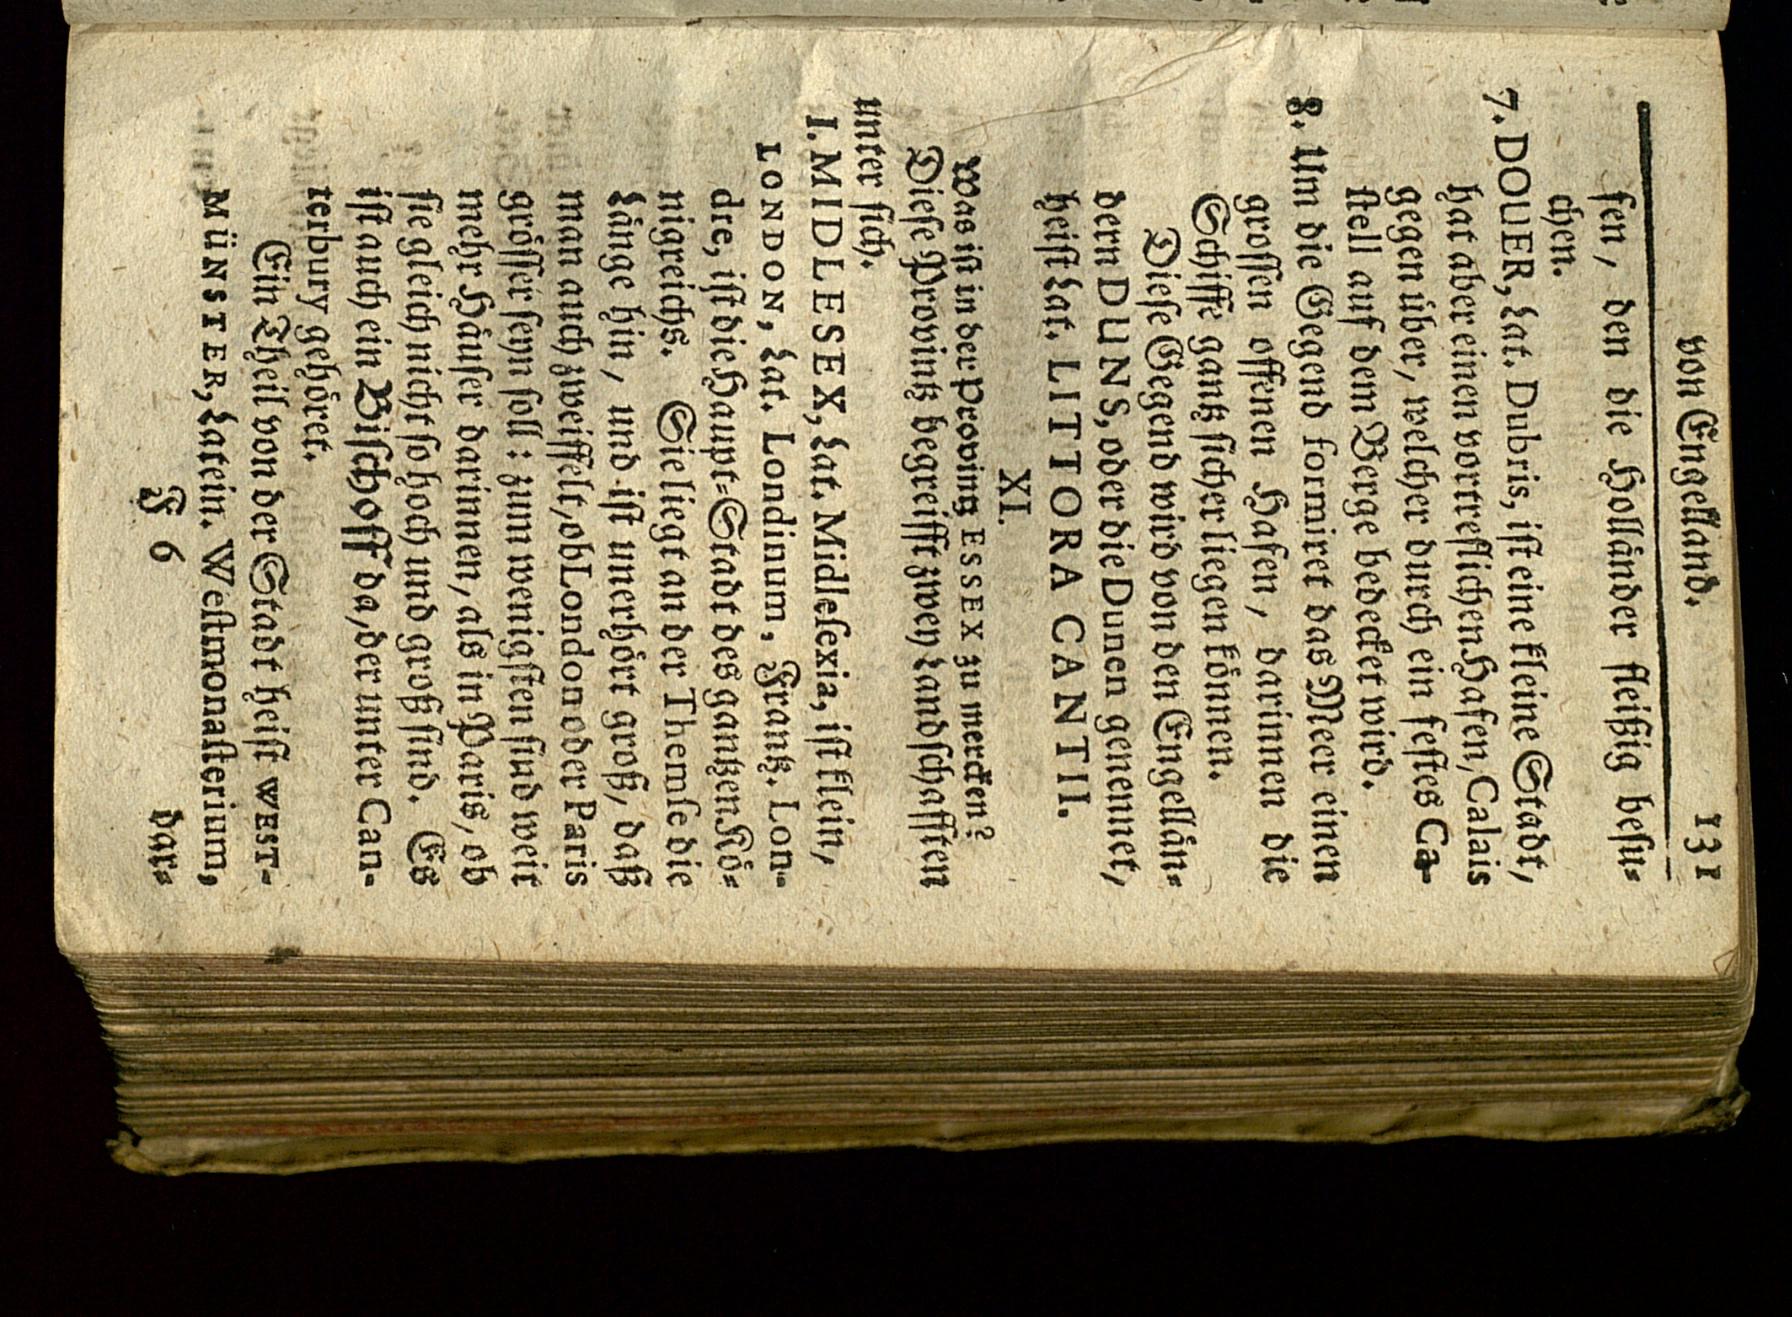 von Engelland. 131
sen, den die Holländer fleißig besu-
chen.
7. DOUER, Lat. Dubris, ist eine kleine Stadt,
hat aber einen vortreflichen Hafen, Calais
gegen über, welcher durch ein festes Ca-
stell auf dem Berge bedecket wird.
8. Um die Gegend formiret das Meer einen
grossen offenen Hafen, darinnen die
Schiffe gantz sicher liegen können.
Diese Gegend wird von den Engellän-
dern DUNS, oder die Dunen genennet,
heist Lat. LITTORA CANTII.
XI.
Was ist in der Provintz ESSEX zu mercken?
Diese Provintz begreifft zwey Landschafften
unter sich.
I. MIDLESEX, Lat. Midlesexia, ist klein,
LONDON, Lat. Londinum, Frantz. Lon-
dre, ist die Haupt-Stadt des gantzen Kö-
nigreichs. Sie liegt an der Themse die
Länge hin, und ist unerhört groß, daß
man auch zweiffelt, ob London oder Paris
grösser seyn soll: zum wenigsten sind weit
mehr Häuser darinnen, als in Paris, ob
sie gleich nicht so hoch und groß sind. Es
ist auch ein Bischoff da, der unter Can-
terbury gehöret.
Ein Theil von der Stadt heist WEST-
MÜNSTER, Latein. Westmonasterium,
F 6 dar-